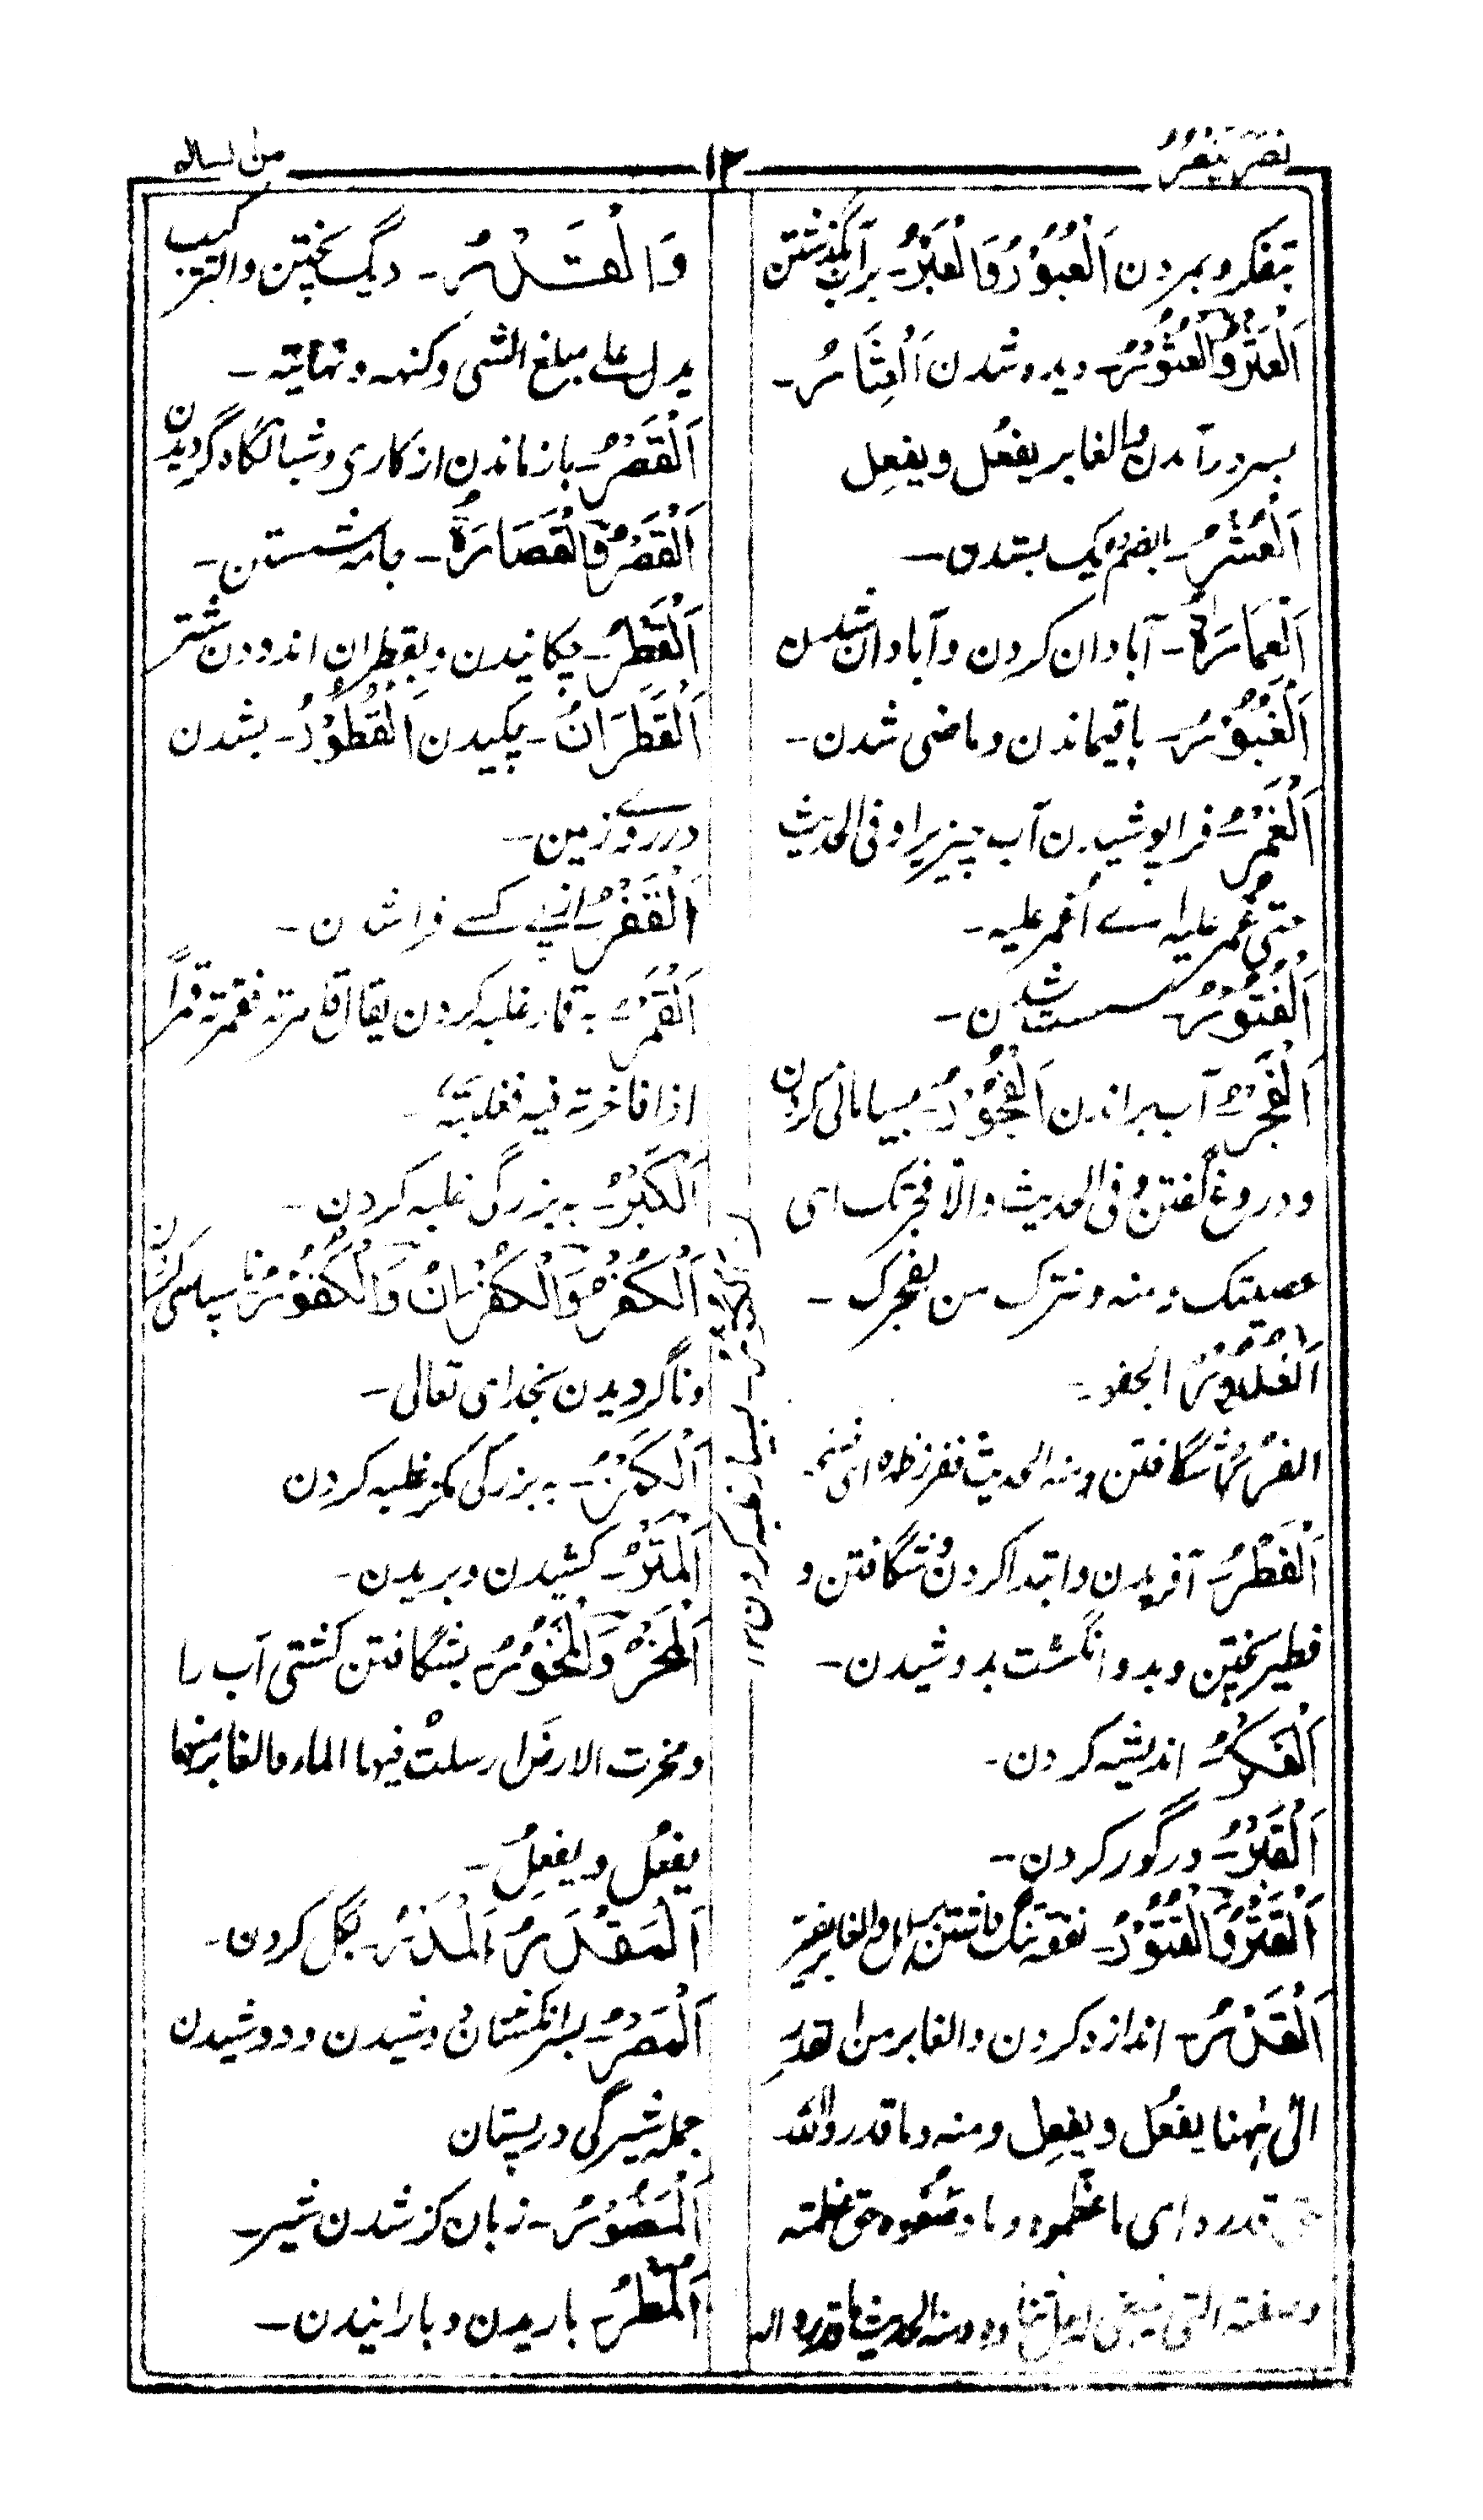 نَصَرَ يَنْصُرُ
١٢
من السالم
بتفکر و بمردن اَلْعُبُوْرُ وَالْعَبْرُ۔ برآب گذشتن
اَلْعَثْرُ وَالْعُثُوْرُ۔ دیده ور شدن اَلْعِثَارُ۔
بسر در آمدن والغابر یفعُل ویفعِل
اَلْعُشْرُ۔ بالضم ده یک بستدن۔
اَلْعِمَارَةُ۔ آبادان کردن و آبادان شدن
اَلْغُبُوْرُ۔ باقیماندن و ماضی شدن۔
اَلْغَمْرُ۔ فراپوشیدن آب چیزیرا و فی الحدیث
حتی غُمر علیه اے اُغمر علیه۔
اَلْفُتُوْرُ۔ سست شدن۔
اَلْفَجْرُ۔ آب براندن اَلْفُجُوْرُ۔ بیسامانی کردن
و دروغ گفتن و فی الحدیث والّا فجرتک ای
عصیتک ومنه ونترک من یفجرک۔
الجفور۔
الفزرُ شگافتن ومنه الحدیث ففزر ای
اَلْفَطْرُ۔ آفریدن و ابتدا کردن و شگافتن و
فطیر پختن و بدو انگشت بدوشیدن۔
اَلْفَکْرُ۔ اندیشه کردن۔
اَلْقَبْرُ۔ درگور کردن۔
اَلْقَتْرُ وَالْقُتُوْرُ۔ نفقه تنگ داشتن والغابر
اَلْقَدْرُ۔ اندازه کردن والغابر من القدر
الی ههنا یفعُل ویفعِل ومنه وما قدروا الله
حق قدره ای ما عظموه وما وصفوه حق عظمته
وصفته التی ومنه الحدیث فاقدروا له
وَالْقَدْرُ۔ دیگ پختن والترکیب
یدل علی مبلغ الشی وکنهه ونهایته۔
اَلْقَصْرُ۔ باز ماندن از کاری و شبانگاه گردیدن
اَلْقَصْرُ وَالْقَصَارَةُ۔ جامه شستن۔
اَلْقَطْرُ۔ چکانیدن و بقطران اندودن شتر
اَلْقَطَرَانُ۔ چکیدن اَلْقُطُوْرُ۔ بشدن
در روے زمین۔
اَلْقَفْرُ۔ از پے کسے فراشدن۔
اَلْقَمْرُ۔ به قمار غلبه کردن یقال قامرته فقمرته قمراً
اذا فاخرته فیه فغلبته
اَلْکَبْرُ۔ به بزرگی غلبه کردن۔
اَلْکُفْرُ وَالْکُفْرَانُ وَالْکُفُوْرُ۔ ناسپاسی کردن
و ناگردیدن بخدای تعالی۔
اَلْکَمْرُ۔ به بزرگی کمر غلبه کردن
اَلْمَتْرُ۔ کشیدن و بریدن۔
اَلْمَخْرُ وَالْمُخُوْرُ۔ بشگافتن کشتی آب را
ومخرت الارض ارسلتْ فیها الماء والغابر منهما
یفعُل ویفعِلُ۔
اَلْمَدْرُ۔ بگل کردن۔
اَلْمَصْرُ۔ بسر انگشتان دوشیدن و دوشیدن
جمله شیر کی در پستان
اَلْمُصُوْرُ۔ زبان گز شدن شیر۔
اَلْمَطْرُ۔ باریدن و بارانیدن۔